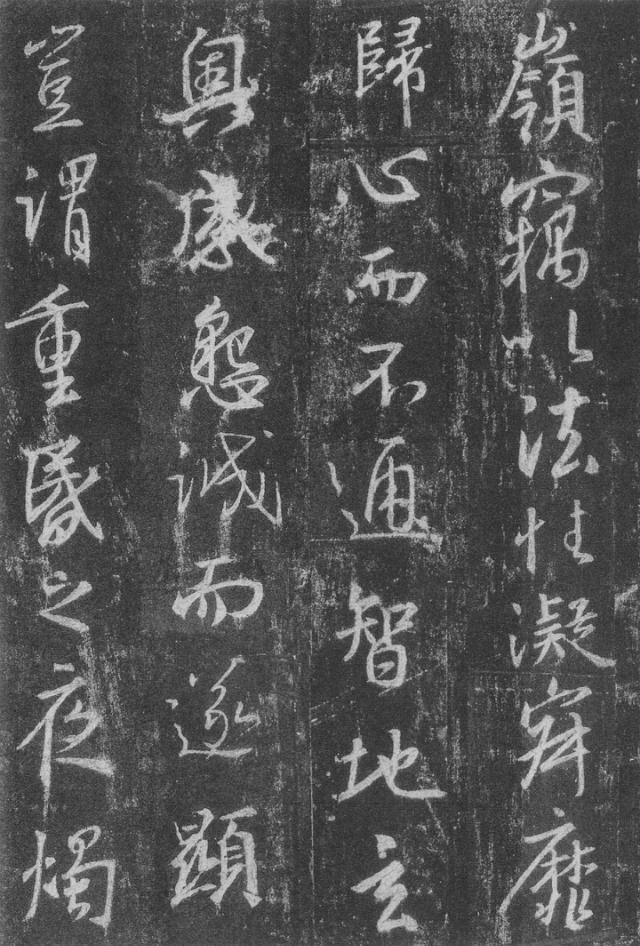 嶺竊以法性凝寂靡
歸心而不通智地玄
奧感懇誠而遂顯
豈謂重昏之夜燭